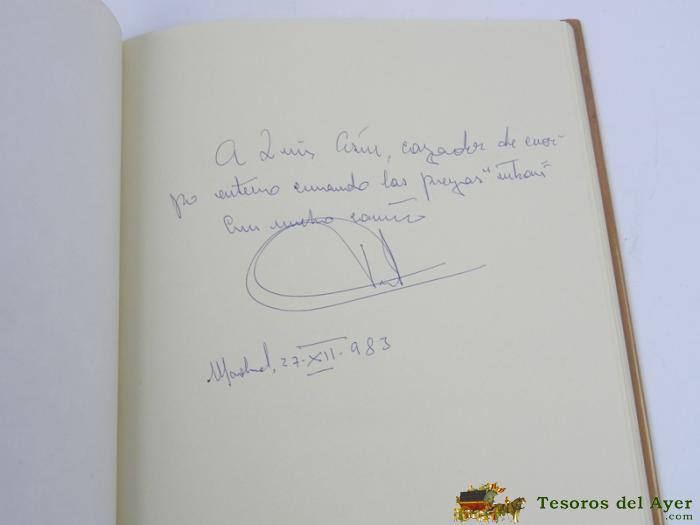 A Luis Asín, cazador de cuer-
po entero cuando las piezas "
Con mucho cariño
Madrid, 27-XII-983
Tesoros del Ayer
.com